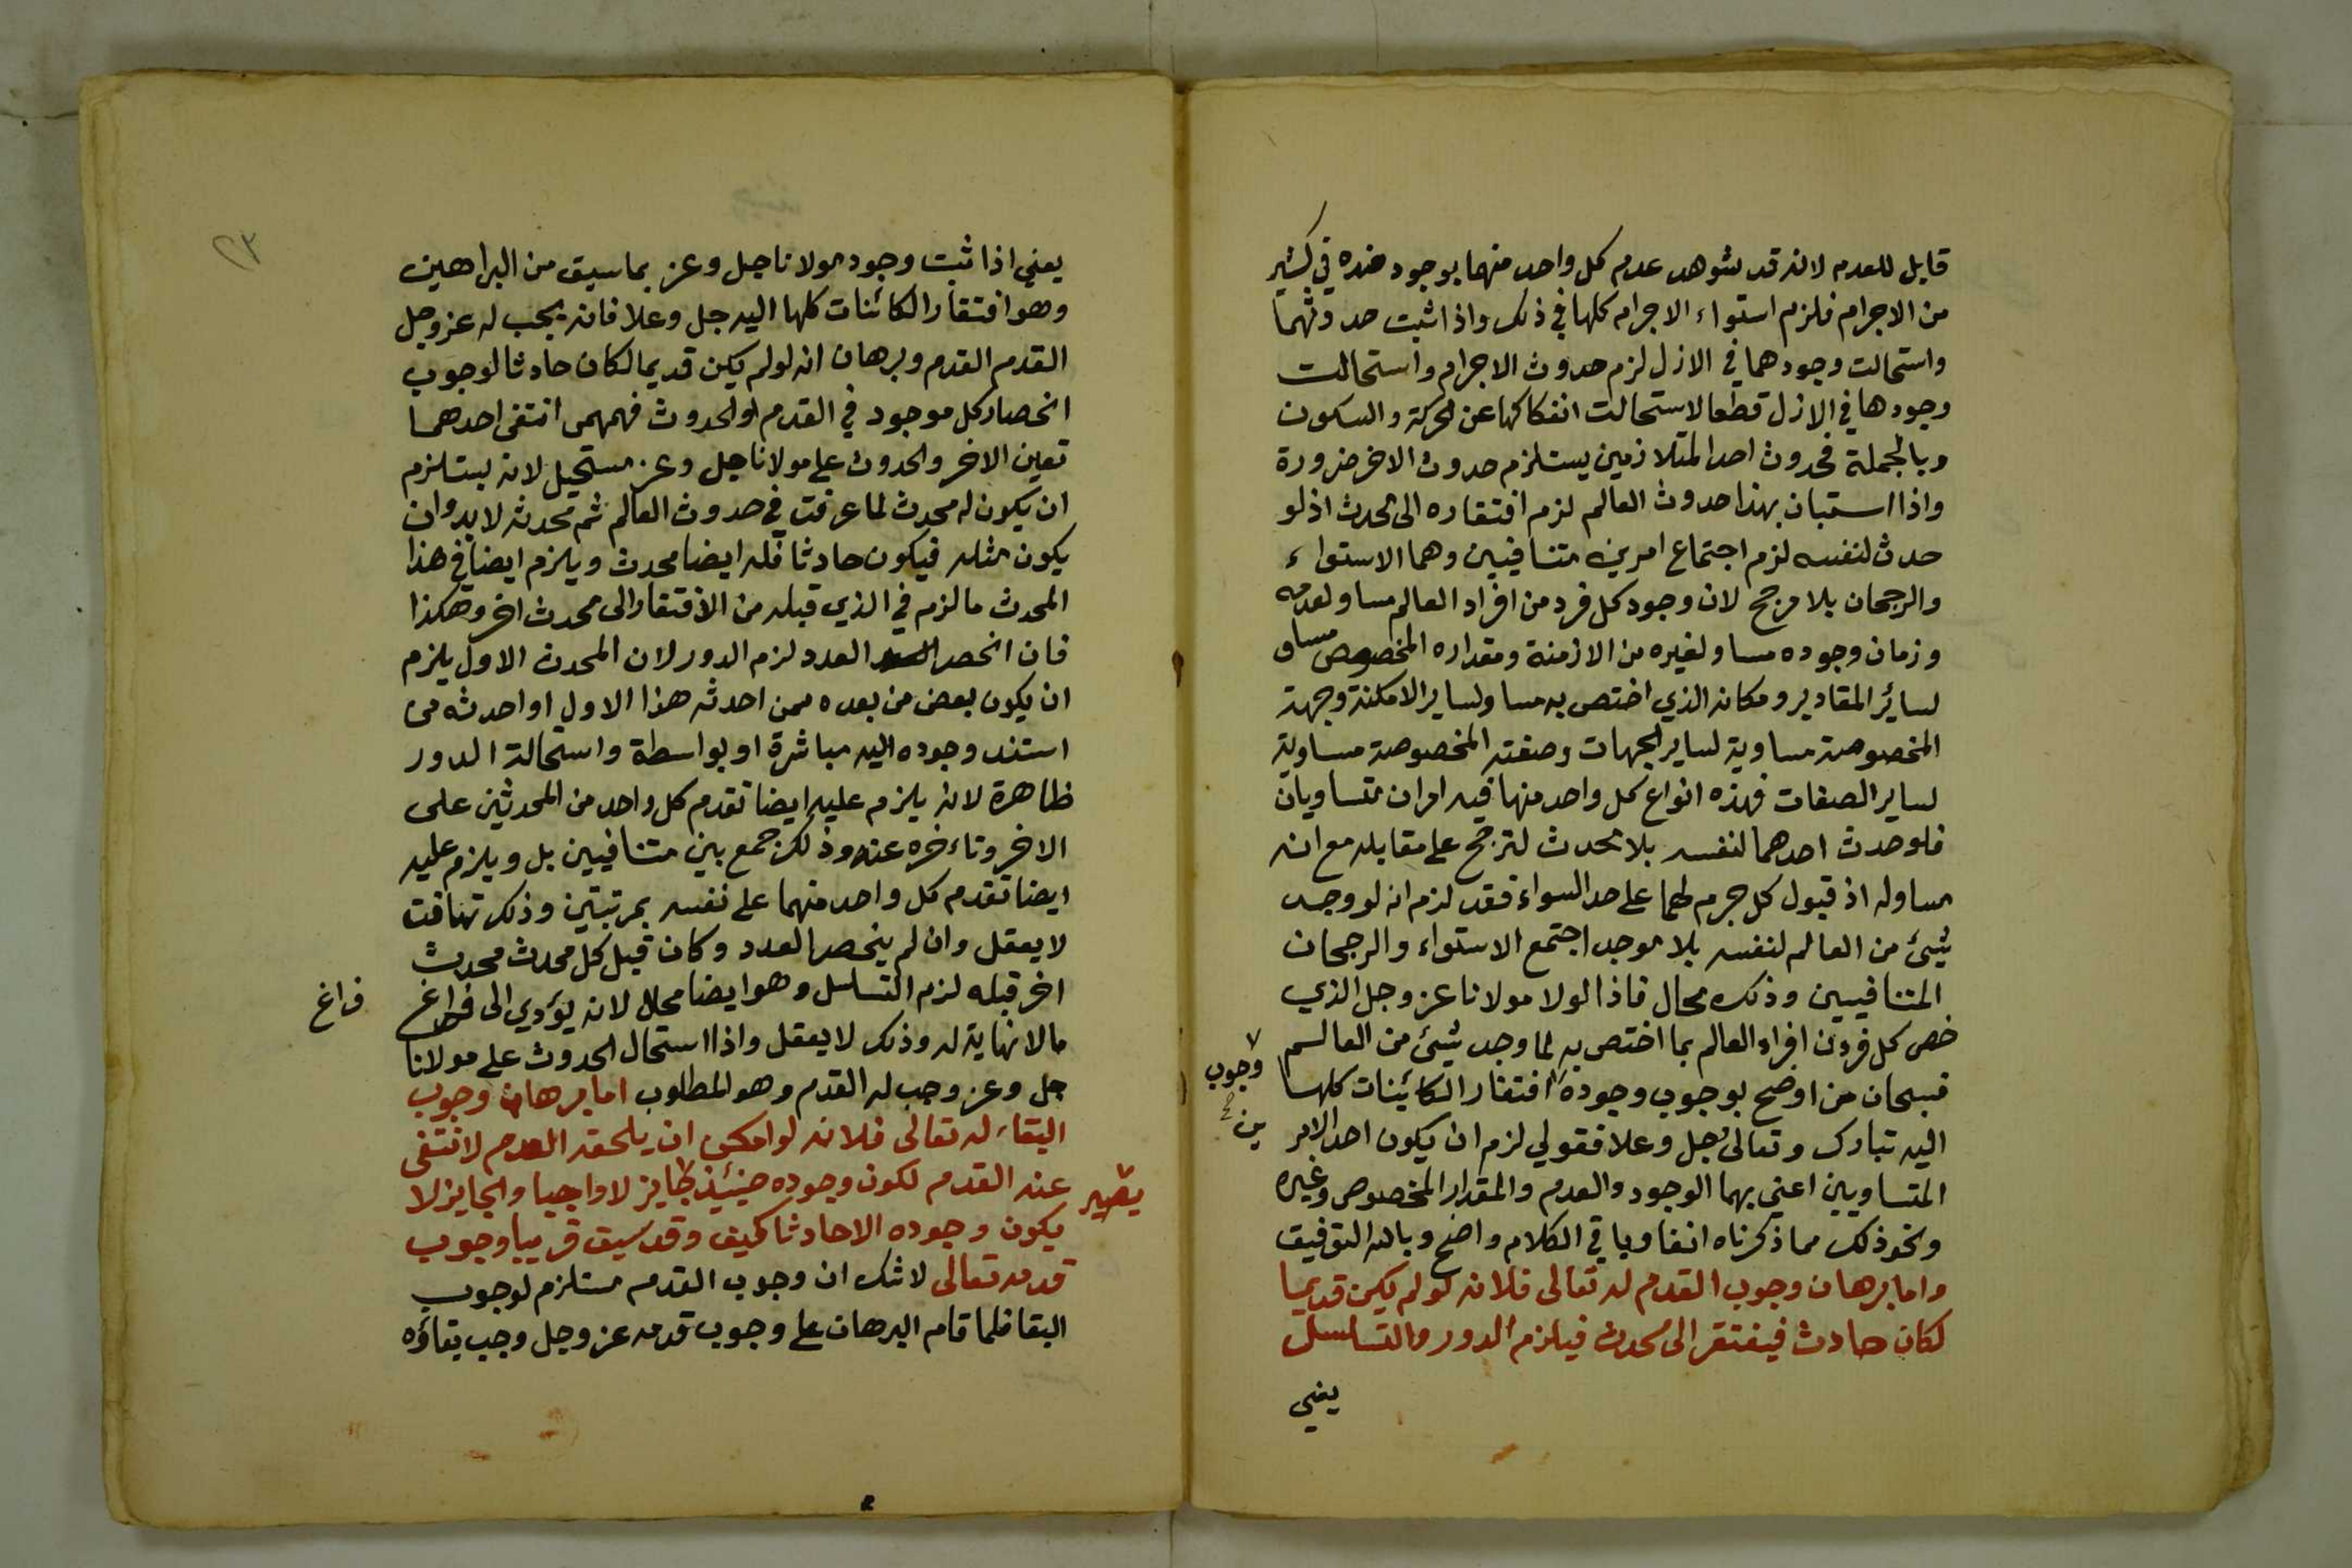 قابل للعدم لانه قد شوهد عدم كل واحد منهما بوجود ضده في كثير
من الاجرام فلزم استواء الاجرام كلها في ذلك واذا ثبت حدوثهما
واستحالت وجودهما في الازل لزم حدوث الاجرام واستحالت
وجودها في الازل قطعا لاستحالت انفكاكها عن الحركة والسكون
وبالجملة فحدوث احد المتلازمين يستلزم حدوث الاخر ضرورة
واذا استبان بهذا حدوث العالم لزم افتقاره الى محدث اذ لو
حدث لنفسه لزم اجتماع امرين متنافيين وهما الاستواء
والرجحان بلا مرجح لان وجود كل فرد من افراد العالم مساو لعدمه
وزمان وجوده مساو لغيره من الازمنة ومقداره المخصوص مساو
لسائر المقادير ومكانه الذي اختص به مساو لساير الامكنة وجهته
المخصوصة مساوية لساير الجهات وصفته المخصوصة مساوية
لساير الصفات فهذه انواع كل واحد منها فيه امران متساويان
فلو حدث احدهما لنفسه بلا محدث لترجح على مقابله مع انه
مساو له اذ قبول كل جرم لهما على حد السواء فقد لزم انه لو وجد
شيئ من العالم لنفسه بلا موجد اجتمع الاستواء والرجحان
المتنافيين وذلك محال فاذا لولا مولانا عز وجل الذي
خص كل فرد من افراد العالم بما اختص به لما وجد شيئ من العالم
فسبحان من اوضح بوجوب وجوده افتقار الكائينات كلها
وجوب
اليه تبارك وتعالى جل وعلا فقولي لزم ان يكون احد الامر
ين
المتساويين اعني بهما الوجود والعدم والمقدار المخصوص وغيره
ونحو ذلك مما ذكرناه انفا وباقي الكلام واضح وبالله التوفيق
واما برهان وجوب القدم له تعالى فلانه لو لم يكن قديما
لكان حادث فيفتقر الى محدث فيلزم الدور والتسلسل
يعني
٢٣
يعني اذا ثبت وجود مولانا جل وعز بما سبق من البراهين
وهو افتقار الكائنات كلها اليه جل وعلا فانه يجب له عز وجل
القدم القدم وبرهان انه لو لم يكن قديما لكان حادثا لوجوب
انحصار كل موجود في القدم او الحدوث فمهمى انتفى احدهما
تعين الاخر والحدوث على مولانا جل وعز مستحيل لانه يستلزم
ان يكون له محدث لما عرفت في حدوث العالم ثم محدثه لا بد وان
يكون مثله فيكون حادثا فله ايضا محدث ويلزم ايضا في هذا
المحدث ما لزم في الذي قبله من الافتقار الى محدث اخر وهكذا
فان انحصر العدد لزم الدور لان المحدث الاول يلزم
ان يكون بعض من بعده ممن احدثه هذا الاول او احدثه من
استند وجوده اليه مباشرة او بواسطة واستحالة الدور
ظاهرة لانه يلزم عليه ايضا تقدم كل واحد من المحدثين على
الاخر وتاءخره عنه وذلك جمع بين متنافيين بل ويلزم عليه
ايضا تقدم كل واحد منهما على نفسه بمرتبتين وذلك تهافت
لا يعقل وان لم ينحصر العدد وكان قبل كل محدث محدث
اخر قبله لزم التسلسل وهو ايضا محال لانه يؤدي الى فراغ
فراغ
ما لا نهاية له وذلك لا يعقل واذا استحال الحدوث على مولانا
جل وعز وجب له القدم وهو المطلوب اما برهان وجوب
البقاء له تعالى فلانه لو امكن ان يلحقه العدم لانتفى
عنه القدم لكون وجوده حينئذ جايز لا واجبا والجايز لا
يصير
يكون وجوده الا حادثا كيف وقد سبق قريبا وجوب
قدمه تعالى لا شك ان وجوب القدم مستلزم لوجوب
البقا فلما قام البرهان على وجوب قدمه عز وجل وجب بقاؤه